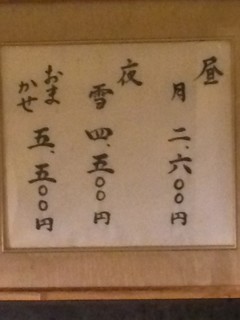 昼
月 二、六〇〇円
夜
雪 四、五〇〇円
おまかせ 五、五〇〇円